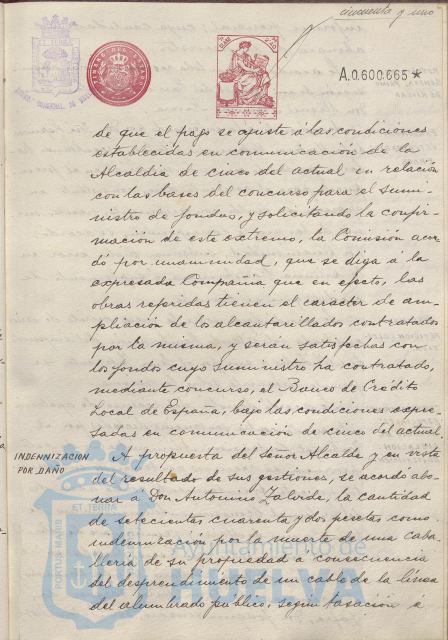 cincuenta y uno
TIMBRE DEL ESTADO
A.0.600.665*
de que el pago se ajuste á las condiciones
establecidas en comunicación de la
Alcaldía de cinco del actual en relación
con las bases del concurso para el sumi-
nistro de fondos, y solicitando la confir-
mación de este extremo, la Comisión acor-
dó por unanimidad, que se diga á la
expresada Compañia que en efecto, las
obras referidas tienen el caracter de am-
pliación de los alcantarillados contratados
por la misma, y serán satisfechas con
los fondos cuyo suministro ha contratado,
mediante concurso, el Banco de Crédito
Local de España, bajo las condiciones expre-
sadas en comunicación de cinco del actual.
INDEMNIZACION
POR DAÑO
A propuesta del Señor Alcalde y en vista
del resultado de sus gestiones, se acordo abo-
nar á Don Antonino Zalvide, la cantidad
de setecientas cuarenta y dos pesetas como
indemnización por la muerte de una caba-
lleria de su propiedad a consecuencia
del desprendimiento de un cable de la línea
del alumbrado público, segun tasación é
PORTUS MARIS
ET TERRÆ
Ayuntamiento de
HUELVA